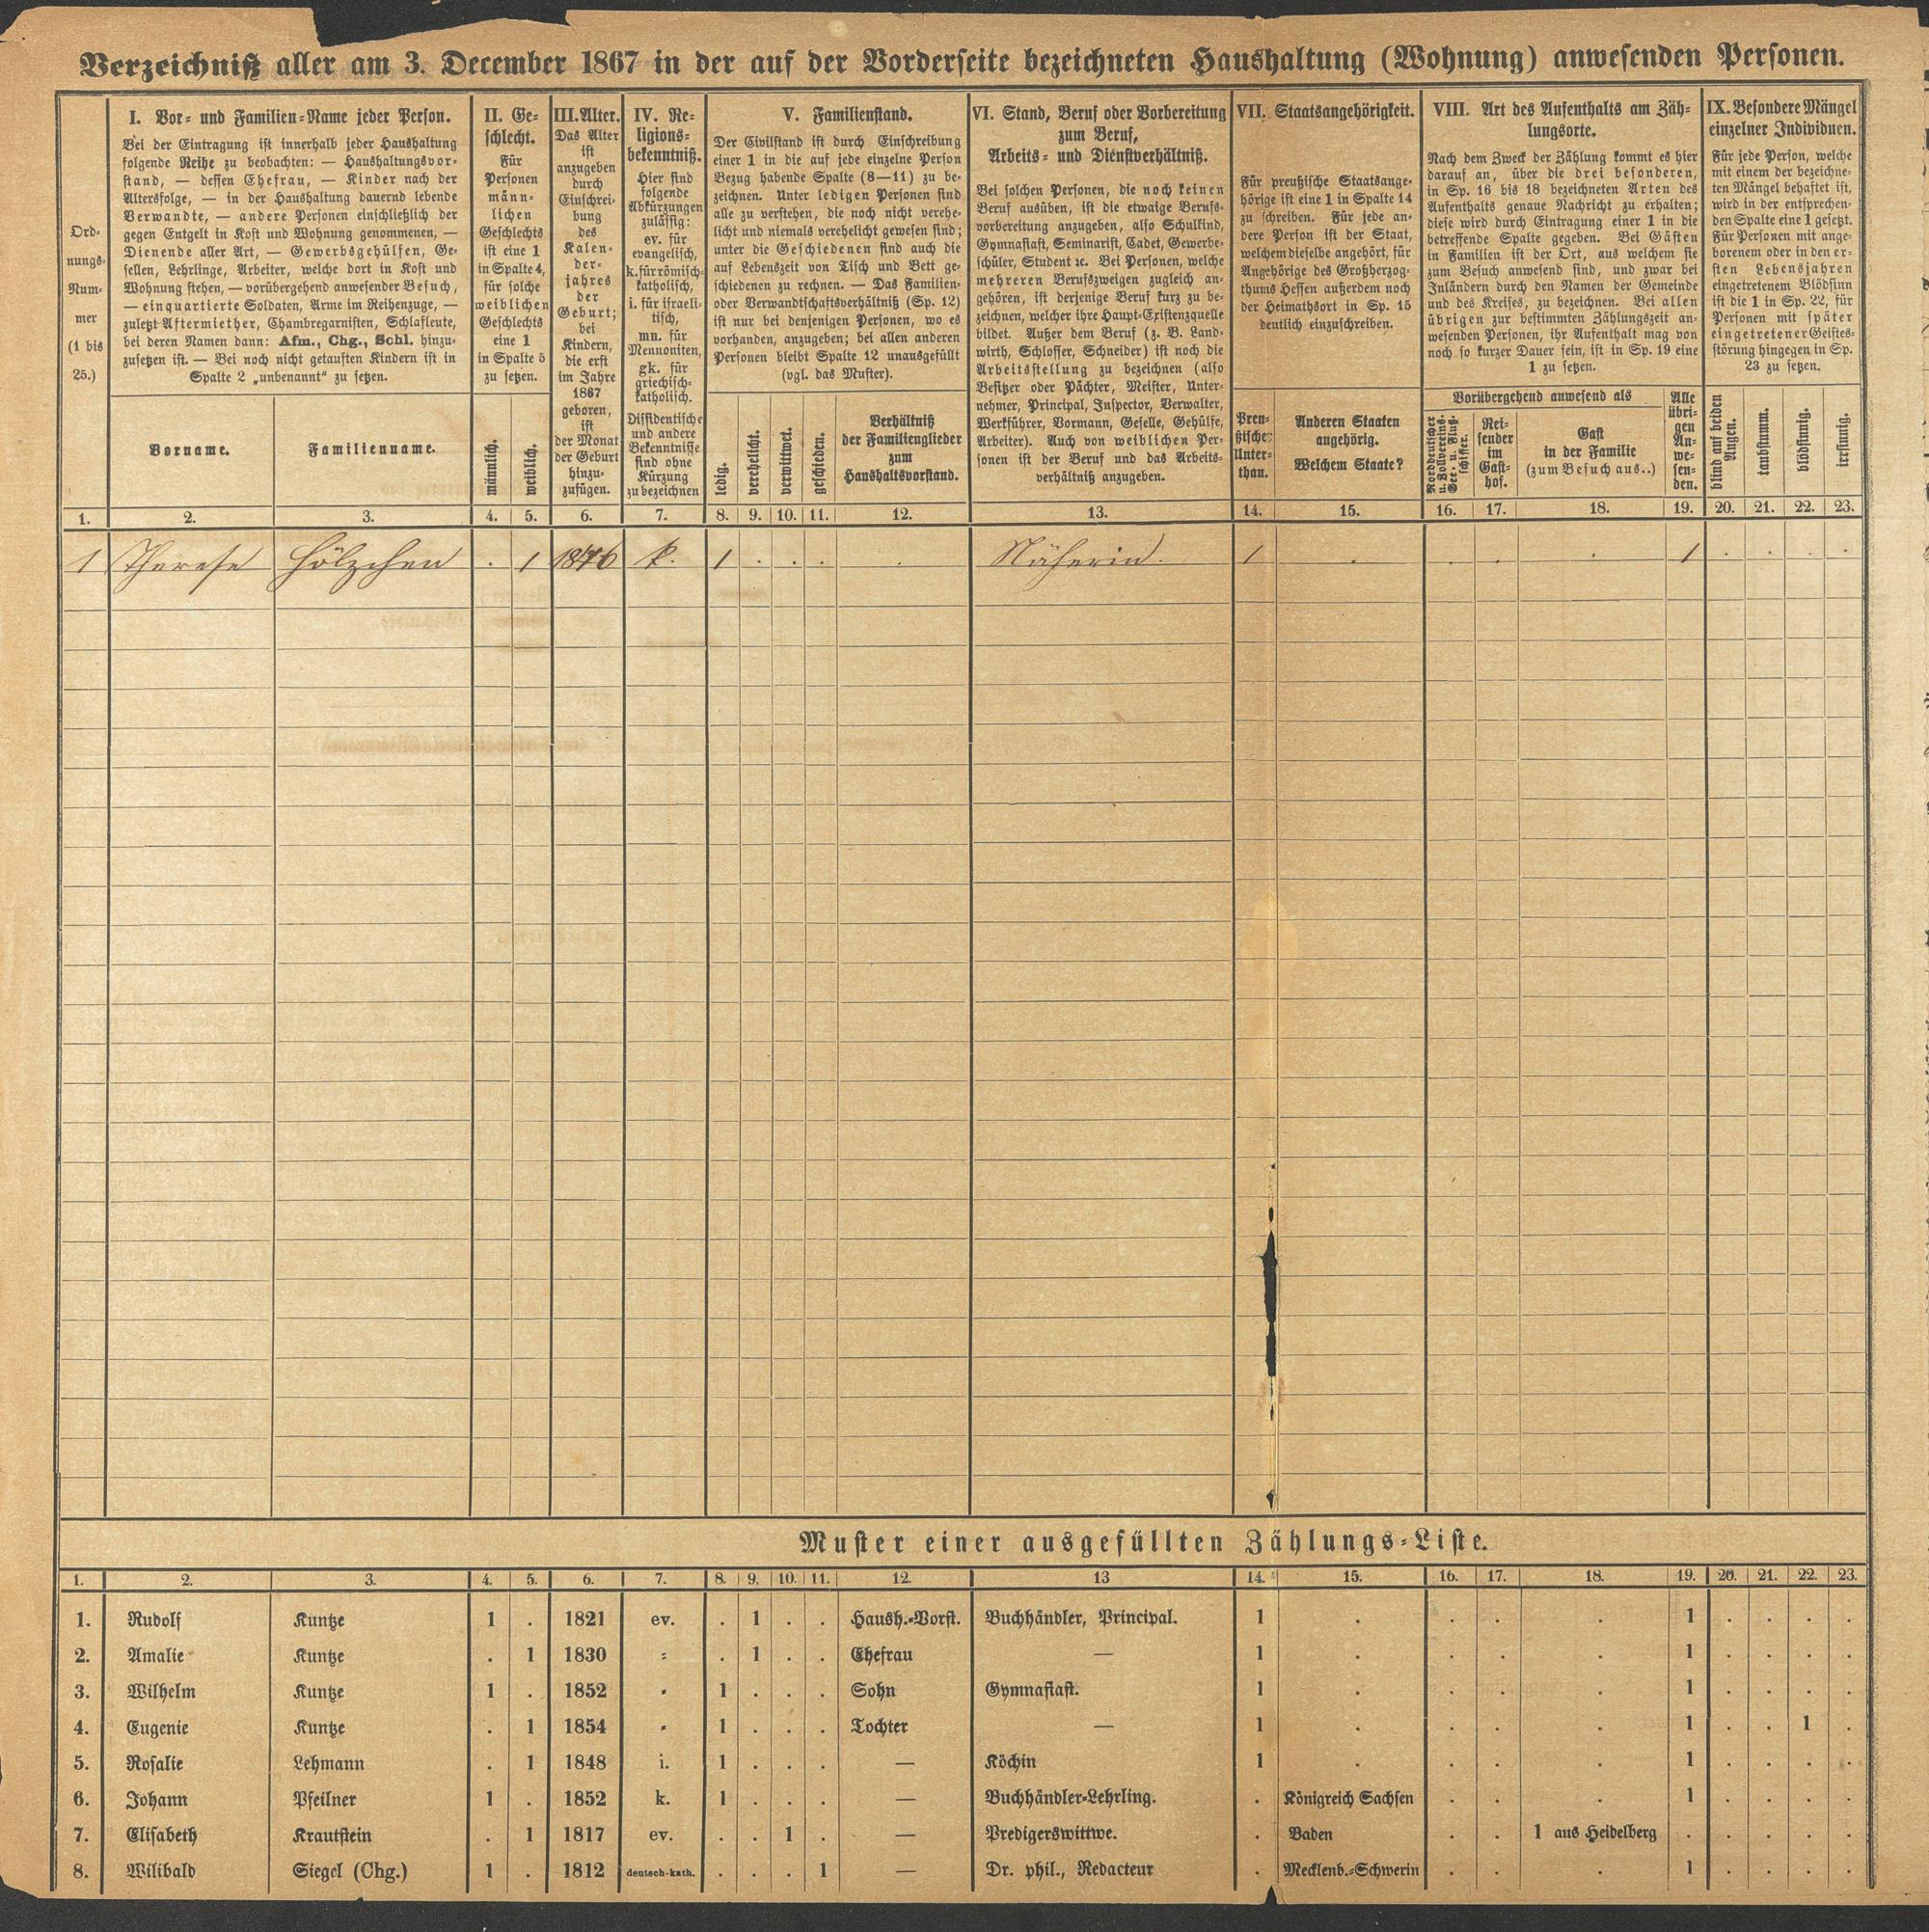 Verzeichniß aller am 3. December 1867 in der auf der Vorderseite bezeichneten Haushaltung (Wohnung) anwesenden Personen.
Ord-
nungs-
Num-
mer
(1 bis
25.)
I. Vor- und Familien-Name jeder Person.
Bei der Eintragung ist innerhalb jeder Haushaltung
folgende Reihe zu beobachten: — Haushaltungsvor-
stand, — dessen Ehefrau, — Kinder nach der
Altersfolge, — in der Haushaltung dauernd lebende
Verwandte, — andere Personen einschließlich der
gegen Entgelt in Kost und Wohnung genommenen, —
Dienende aller Art, — Gewerbsgehülfen, Ge-
sellen, Lehrlinge, Arbeiter, welche dort in Kost und
Wohnung stehen, — vorübergehend anwesender Besuch,
— einquartierte Soldaten, Arme im Reihenzuge, —
zuletzt Aftermiether, Chambregarnisten, Schlafleute,
bei deren Namen dann: Afm., Chg., Schl. hinzu-
zusetzen ist. — Bei noch nicht getauften Kindern ist in
Spalte 2 „unbenannt“ zu setzen.
Vorname.
Familienname.
II. Ge-
schlecht.
Für
Personen
männ-
lichen
Geschlechts
ist eine 1
in Spalte 4,
für solche
weiblichen
Geschlechts
eine 1
in Spalte 5
zu setzen.
männlich.
weiblich.
III. Alter.
Das Alter
ist
anzugeben
durch
Einschrei-
bung
des
Kalen-
der-
jahres
der
Geburt;
bei
Kindern,
die erst
im Jahre
1867
geboren,
ist
der Monat
der Geburt
hinzu-
zufügen.
IV. Re-
ligions-
bekenntniß.
Hier sind
folgende
Abkürzungen
zulässig:
ev. für
evangelisch,
k. für römisch-
katholisch,
i. für israeli-
tisch,
mn. für
Mennoniten,
gk. für
griechisch-
katholisch.
Dissidentische
und andere
Bekenntnisse
sind ohne
Kürzung
zu bezeichnen
V. Familienstand.
Der Civilstand ist durch Einschreibung
einer 1 in die auf jede einzelne Person
Bezug habende Spalte (8—11) zu be-
zeichnen. Unter ledigen Personen sind
alle zu verstehen, die noch nicht verehe-
licht und niemals verehelicht gewesen sind;
unter die Geschiedenen sind auch die
auf Lebenszeit von Tisch und Bett ge-
schiedenen zu rechnen. — Das Familien-
oder Verwandtschaftsverhältniß (Sp. 12)
ist nur bei denjenigen Personen, wo es
vorhanden, anzugeben; bei allen anderen
Personen bleibt Spalte 12 unausgefüllt
(vgl. das Muster).
ledig.
verehelicht.
verwittwet.
geschieden.
Verhältniß
der Familienglieder
zum
Haushaltsvorstand.
VI. Stand, Beruf oder Vorbereitung
zum Beruf,
Arbeits- und Dienstverhältniß.
Bei solchen Personen, die noch keinen
Beruf ausüben, ist die etwaige Berufs-
vorbereitung anzugeben, also Schulkind,
Gymnasiast, Seminarist, Cadet, Gewerbe-
schüler, Student ꝛc. Bei Personen, welche
mehreren Berufszweigen zugleich an-
gehören, ist derjenige Beruf kurz zu be-
zeichnen, welcher ihre Haupt-Existenzquelle
bildet. Außer dem Beruf (z. B. Land-
wirth, Schlosser, Schneider) ist noch die
Arbeitsstellung zu bezeichnen (also
Besitzer oder Pächter, Meister, Unter-
nehmer, Principal, Inspector, Verwalter,
Werkführer, Vormann, Geselle, Gehülfe,
Arbeiter). Auch von weiblichen Per-
sonen ist der Beruf und das Arbeits-
verhältniß anzugeben.
VII. Staatsangehörigkeit.
Für preußische Staatsange-
hörige ist eine 1 in Spalte 14
zu schreiben. Für jede an-
dere Person ist der Staat,
welchem dieselbe angehört, für
Angehörige des Großherzog-
thums Hessen außerdem noch
der Heimathsort in Sp. 15
deutlich einzuschreiben.
Preu-
ßischer
Unter-
than.
Anderen Staaten
angehörig.
Welchem Staate?
VIII. Art des Aufenthalts am Zäh-
lungsorte.
Nach dem Zweck der Zählung kommt es hier
darauf an, über die drei besonderen,
in Sp. 16 bis 18 bezeichneten Arten des
Aufenthalts genaue Nachricht zu erhalten;
diese wird durch Eintragung einer 1 in die
betreffende Spalte gegeben. Bei Gästen
in Familien ist der Ort, aus welchem sie
zum Besuch anwesend sind, und zwar bei
Inländern durch den Namen der Gemeinde
und des Kreises, zu bezeichnen. Bei allen
übrigen zur bestimmten Zählungszeit an-
wesenden Personen, ihr Aufenthalt mag von
noch so kurzer Dauer sein, ist in Sp. 19 eine
1 zu setzen.
Vorübergehend anwesend als
Norddeutscher
u. Zollvereins-
See- u. Fluß-
schiffer.
Rei-
sender
im
Gast-
hof.
Gast
in der Familie
(zum Besuch aus..)
Alle
übri-
gen
An-
we-
sen-
den.
IX. Besondere Mängel
einzelner Individuen.
Für jede Person, welche
mit einem der bezeichne-
ten Mängel behaftet ist,
wird in der entsprechen-
den Spalte eine 1 gesetzt.
Für Personen mit ange-
borenem oder in den er-
sten Lebensjahren
eingetretenem Blödsinn
ist die 1 in Sp. 22, für
Personen mit später
eingetretener Geistes-
störung hingegen in Sp.
23 zu setzen.
blind auf beiden
Augen.
taubstumm.
blödsinnig.
irrsinnig.
1. 2. 3. 4. 5. 6. 7. 8. 9. 10. 11. 12. 13. 14. 15. 16. 17. 18. 19. 20. 21. 22. 23.
1 Therese Hölzchen . 1 1846 k. 1 . . . . Näherin. 1 . . . . 1 . . . .
Muster einer ausgefüllten Zählungs-Liste.
1. 2. 3. 4. 5. 6. 7. 8. 9. 10. 11. 12. 13 14. 15. 16. 17. 18. 19. 20. 21. 22. 23.
1. Rudolf Kuntze 1 . 1821 ev. . 1 . . Haush.-Vorst. Buchhändler, Principal. 1 . . . . 1 . . . .
2. Amalie Kuntze . 1 1830 = . 1 . . Ehefrau — 1 . . . . 1 . . . .
3. Wilhelm Kuntze 1 . 1852 = 1 . . . Sohn Gymnasiast. 1 . . . . 1 . . . .
4. Eugenie Kuntze . 1 1854 = 1 . . . Tochter — 1 . . . . 1 . . 1 .
5. Rosalie Lehmann . 1 1848 i. 1 . . . — Köchin 1 . . . . 1 . . . .
6. Johann Pfeilner 1 . 1852 k. 1 . . . — Buchhändler-Lehrling. . Königreich Sachsen . . . 1 . . . .
7. Elisabeth Krautstein . 1 1817 ev. . . 1 . — Predigerswittwe. . Baden . . 1 aus Heidelberg . . . . .
8. Wilibald Siegel (Chg.) 1 . 1812 deutsch-kath. . . . 1 — Dr. phil., Redacteur . Mecklenb.-Schwerin . . . 1 . . . .